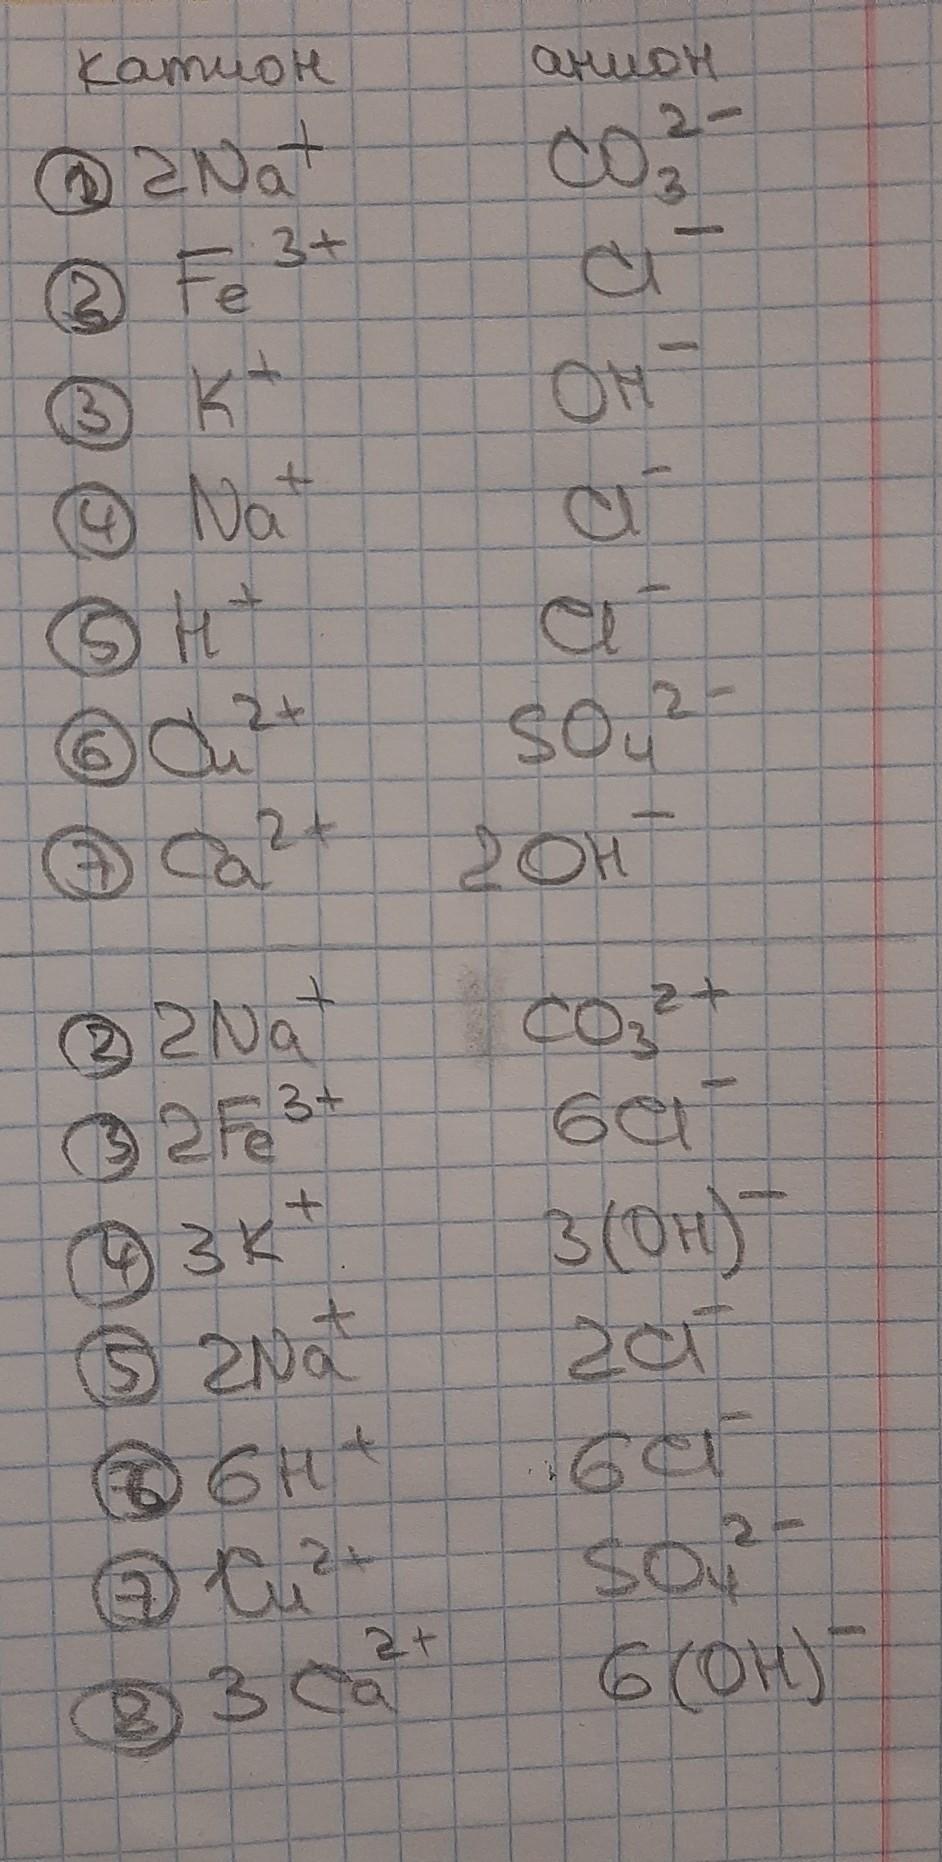 катион анион
① 2Na⁺ CO₃²⁻
② Fe³⁺ Cl⁻
③ K⁺ OH⁻
④ Na⁺ Cl⁻
⑤ H⁺ Cl⁻
⑥ Cu²⁺ SO₄²⁻
⑦ Ca²⁺ 2OH⁻
② 2Na⁺ CO₃²⁺
③ 2Fe³⁺ 6Cl⁻
④ 3K⁺ 3(OH)⁻
⑤ 2Na⁺ 2Cl⁻
⑥ 6H⁺ 6Cl⁻
⑦ Cu²⁺ SO₄²⁻
⑧ 3Ca²⁺ 6(OH)⁻